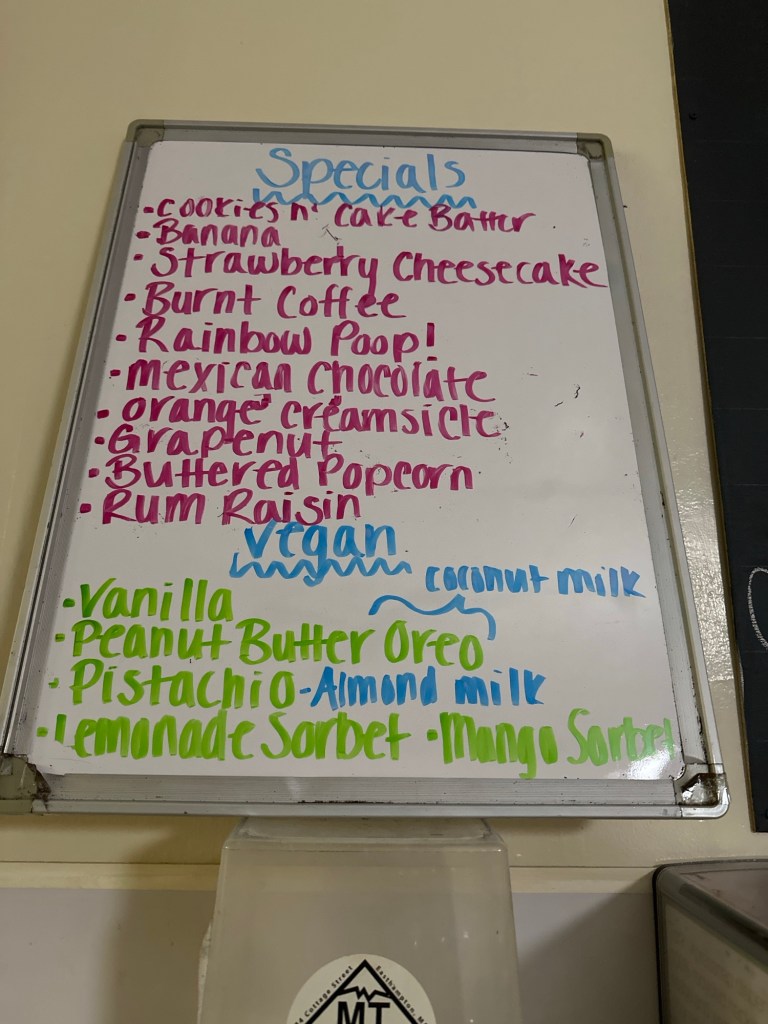 Specials
•Cookies n' Cake Batter
•Banana
•Strawberry Cheesecake
•Burnt Coffee
•Rainbow Poop!
•Mexican Chocolate
•Orange Creamsicle
•Grapenut
•Buttered Popcorn
•Rum Raisin
Vegan
coconut milk
•Vanilla
•Peanut Butter Oreo
•Pistachio-Almond milk
•Lemonade Sorbet •Mango Sorbet
Cottage Street Easthampton,
MT